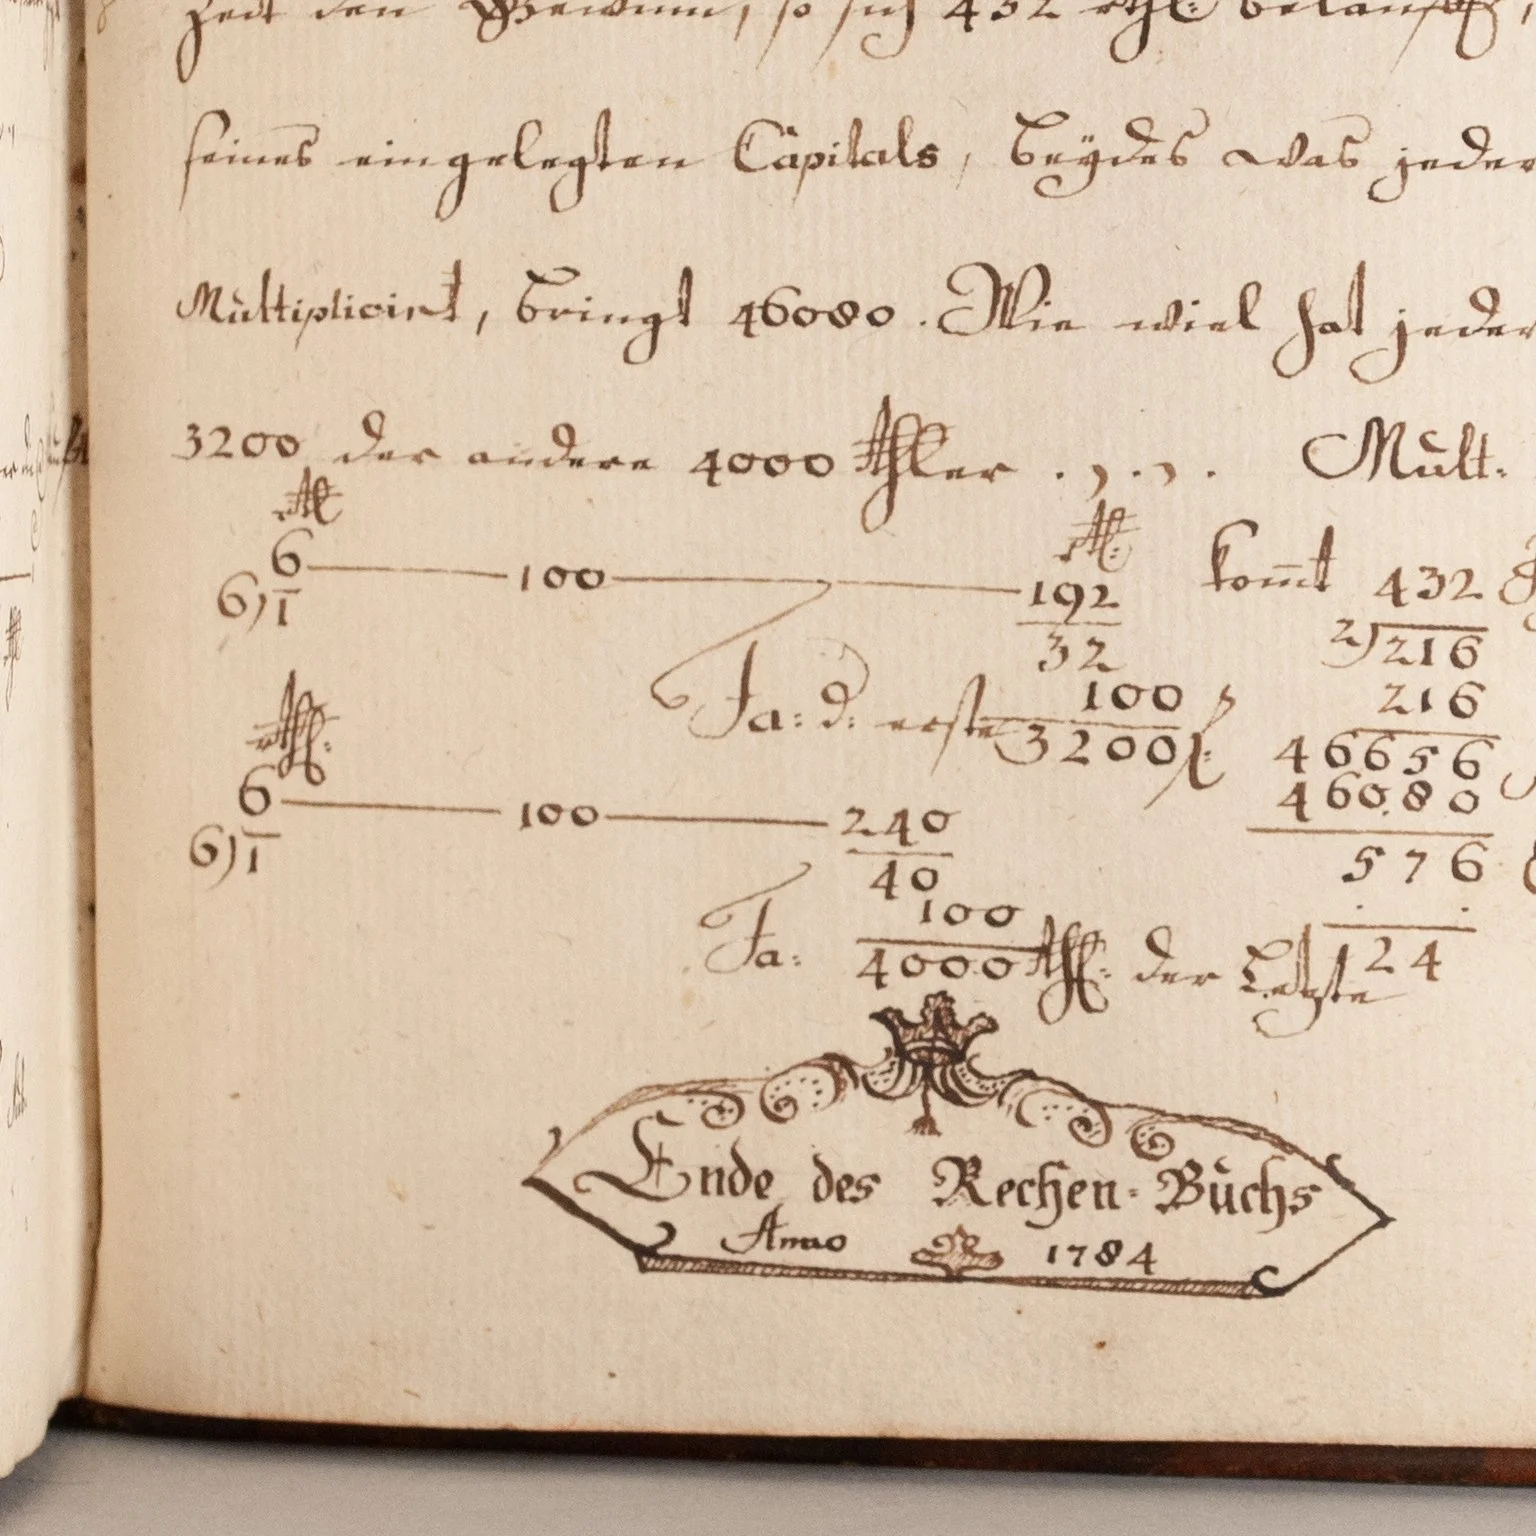 Zeit den Gewinn, so sich 432 rthl: belauft,
seines eingelegten Capitals, beÿdes was jeder
Multiplicirt, bringt 46080. Wie viel hat jeder
3200 der andere 4000 Thler . , . , . Mult:
rtl rtl:
6 — 100 — 192 komt 432
6) 1 32 2) 216
100 216
Fa: d: erste 3200 46656
rthl: 46080
6 — 100 — 240
6) 1 40 576
100
Fa: 4000 thl: der Letzte 24
Ende des Rechen-Buchs
Anno 1784